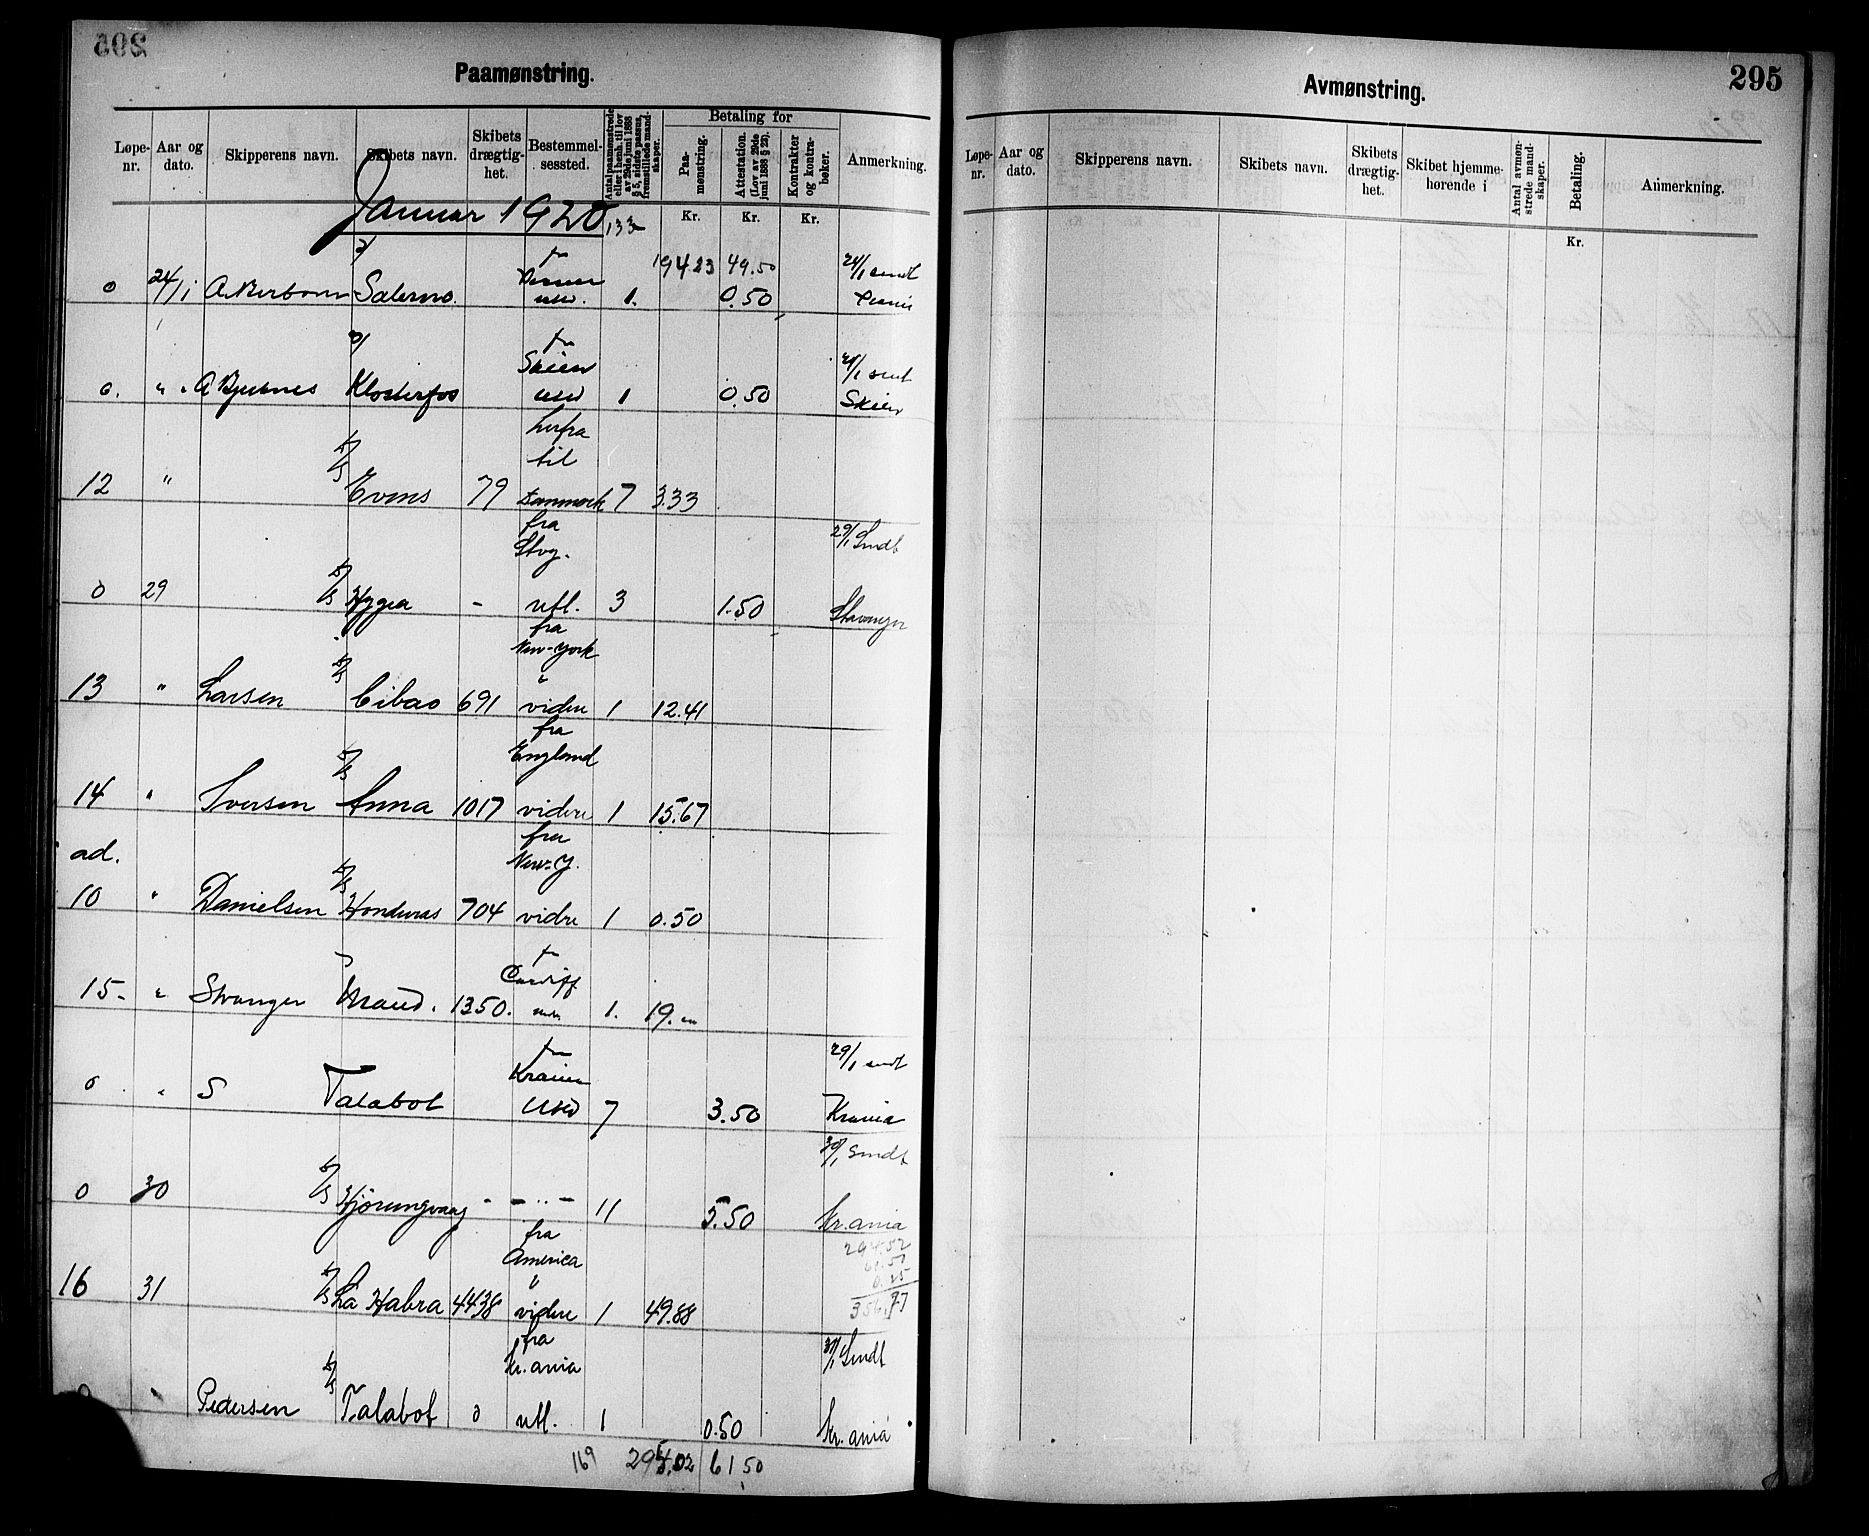 295
Paamønstring.
Løpe-nr. Aar og dato. Skipperens navn. Skibets navn. Skibets drægtig-het. Bestemmel-sessted. Betaling for Paa-mønstring. Attestation. (Lov av 29de juni 1888 § 23). Kontrakter og kontra-bøker. Anmerkning.
Januar 1920 133 Kr. Kr. Kr.
194 23 49.50
0 24/1 Salerno 1. 0.50 24/1 sendt
0. " Klosterfos fra Skien 1 0.50 sendt Skien
12 " Evens 79 herfra til Danmark 7 3.33
0 29 Hygea - fra Stvg. utl. 3 1.50 29/1 Sendt Stavanger
13 " Larsen Cibao 691 fra New-York " videre 1 12.41
14 " Iversen Anna 1017 fra England videre 1 15.67
ad. 10 " Danielsen Honduras 704 fra New-Y. vidre 1 0.50
15- " Stranger Maud. 1350. Cardiff 1. 19.
0 " S Talabot 7 3.50 29/1 sendt Krania
0 30 Hjörungvaag - - " - 11 5.50 30/1 Sendt Kr.ania
16 31 La Habra 4438 fra America " videre 1 49.88
356.77
" Pedersen Talabot 0 fra Kr.ania utl. 1 0.50 31/1 Sendt Kr.ania
169 61 50
Avmønstring.
295
Løpe-nr. Aar og dato. Skipperens navn. Skibets navn. Skibets drægtig-het. Skibet hjemme-hørende i Antal avmøn-strede mand-skaper. Betaling. Anmerkning.
Kr.